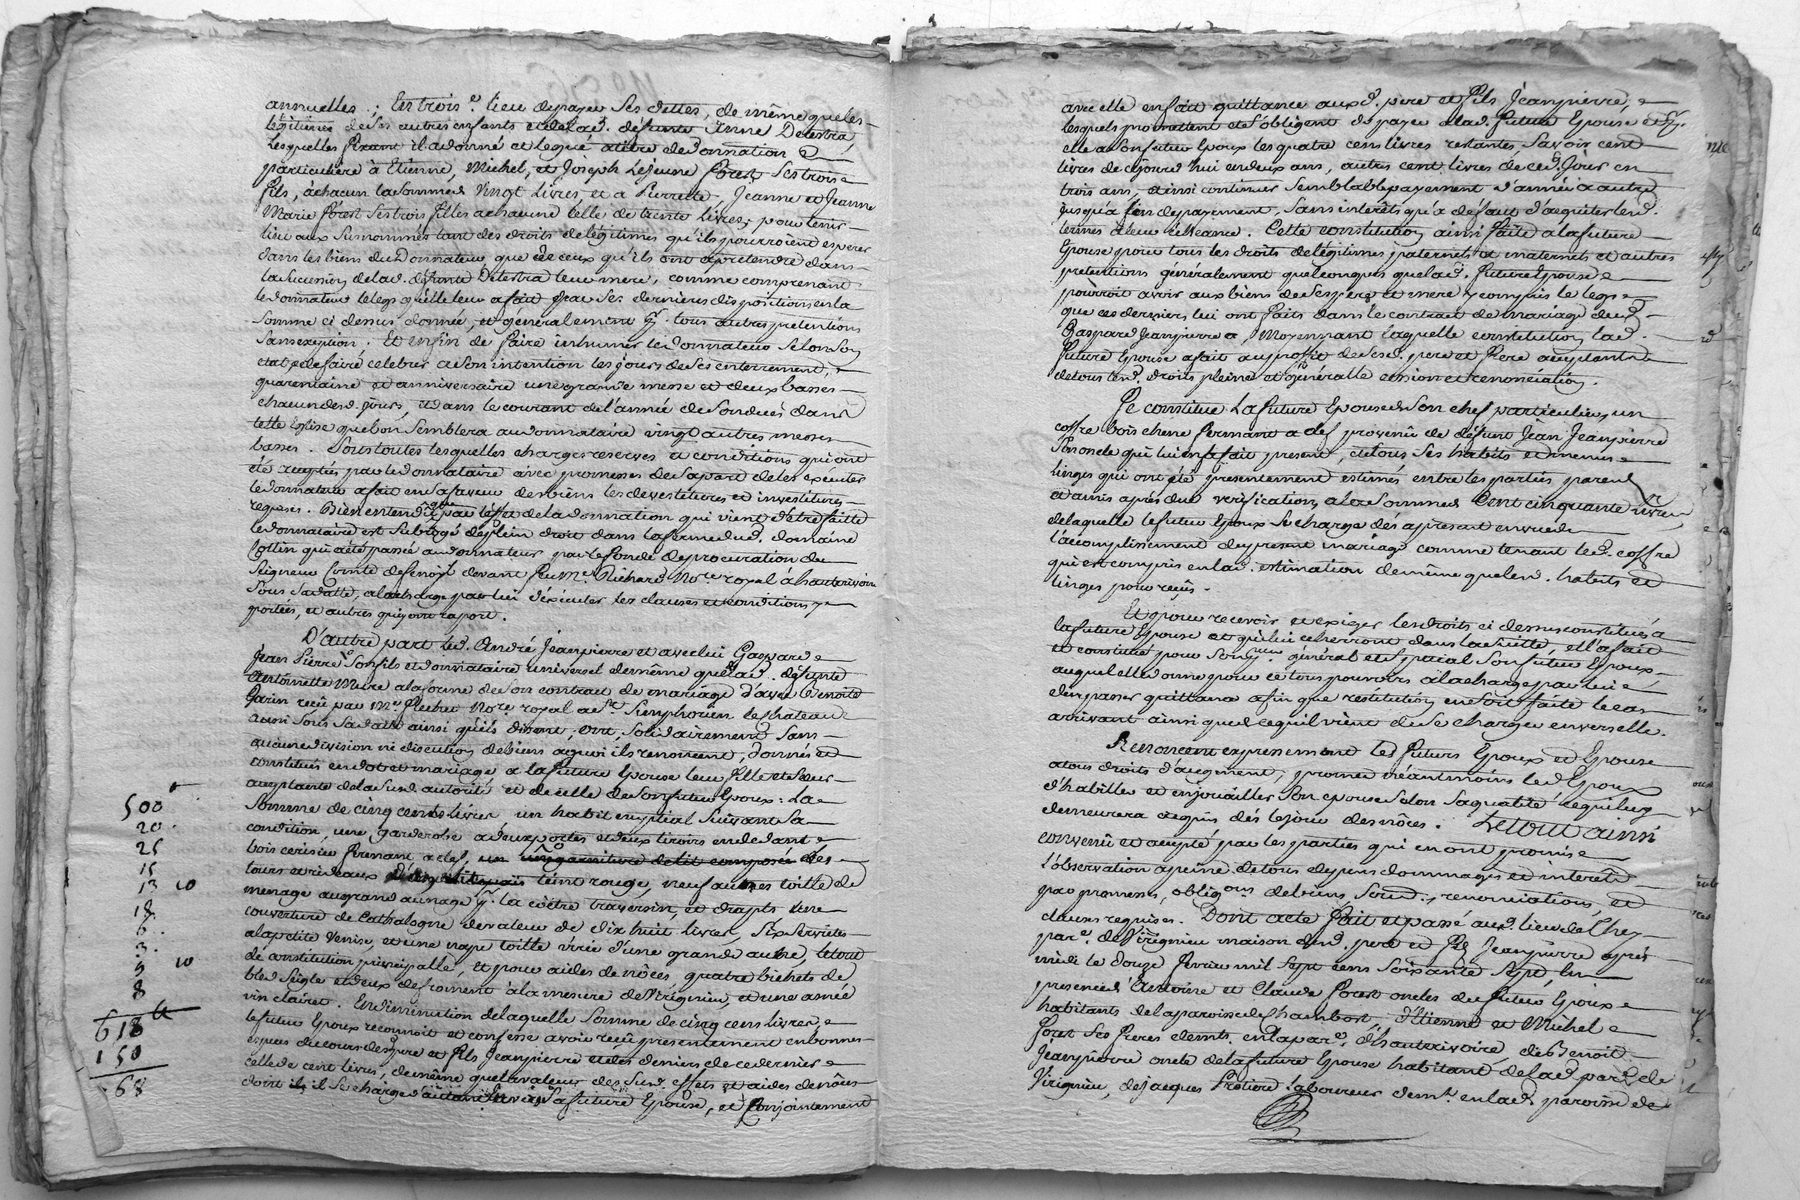 annuelles ; En trois.e lieu de payer ses dettes, de même que les
légitimes de ses autres enfants et de lad. défunte Anne Delestra
Lesquelles Forest il a donné et legué a titre de donnation
particuliere à Etienne, Michel, et Joseph Lejeune Forest ses trois
fils, à chacun la somme de vingt Livres, et a Pierrette, Jeanne et Jeanne
Marie Forest ses trois filles a chacune celle de trente Livres, pour tenir
lieu aux susnommés tant des droits de légitimes qu'ils pourroient esperer
dans les biens du donnateur, que de ceux qu'ils ont a pretendre dans
la succession de lad. défunte Delestra leur mere, comme comprenant
le donnateur le legs qu'elle leur a fait par ses dernieres dispositions en la
somme ci dessus donnée, et généralement p.r tous autres pretentions
sans exception. Et enfin de faire inhumer le donnateur selon son
etat et de faire celebrer a son intention les jours de ses enterrement,
quarentaine et anniversaire une grande messe et deux basses
chacun desd. jours, et dans le courant de l'année de son decès dans
telle Eglise que bon semblera au donnataire vingt autres messes
basses. Sous toutes lesquelles charges reserves et conditions qui ont
été acceptées par le donnataire avec promesses de sa part de les exécuter
le donnateur a fait en sa faveur des biens les devestitures et investitures
requises. Bien entendu que par l'effet de la donnation qui vient d'être faitte
le donnataire est subrogé de plein droit dans la ferme dud. domaine
Jottin qui a été passée au donnateur par le fondé de procuration du
Seigneur Comte de Fenoyl devant feu M.e Richard No.re royal à hauterivoire
sous sa datte, a la charge par lui d'exécuter les clauses et conditions y
portées, et autres qui y ont raport.
D'autre part led. André Jeanpierre et avec lui Gaspard
Jean Pierre son fils et donnataire universel de même que lad. défunte
Antoinette Mure a la forme de son contrat de mariage d'avec Benoite
Garin reçu par M.e No.re royal a S.t Simphorien le chateau
aussi sous sa datte ainsi qu'ils disent, ont, solidairement sans
aucune division ni discution de biens a quoi ils renoncent, donnés et
constitués en dot et mariage a la future Epouse leur fille et sœur
acceptante de lad. autorité et de celle de son futur Epoux : La
somme de cinq cents livres un habit nuptial suivant sa
condition, une garderobe a deux portes et deux tiroirs en dedans
bois cerisier fermant a clef, un garniture de lit composée des
tours et rideaux teint rouge, neuf aunes toille de
menage au grand aunage p.r la coëtre traversin, et draps une
couverture de Cathalogne de valeur de dix huit livres, six serviettes
a la petite Venise, et une nape toille d'une grande aulne, le tout
de constitution principalle, et pour aides de nôces quatre bichets de
bled seigle et deux de froment à la mesure de Virignieu, et une anée
vin clairet. En diminution de laquelle somme de cinq cens livres
le futur Epoux reconnoit et confesse avoir reçu presentement en bonnes
especes du cours desd. pere et fils Jeanpierre et des deniers de ce dernier
celle de cent livres, de même que la valeur des susd. effets et aides de nôces
dont il se charge d'autant envers la future Epouse, et conjointement
500
20
25
15
13 10
18
6
3
9 10
8
618
150
68
avec elle en fait quittance auxd. pere et fils Jeanpierre,
lesquels promettent et s'obligent de payer a lad. future Epouse et
elle a son futur Epoux les quatre cens livres restantes savoir cent
livres de ce jourd'hui en deux ans, autres cent livres de ced. jour en
trois ans, et ainsi continuer semblable payement d'année a autre
jusqu'à fin de payement, sans interêts qu'a défaut d'acquiter lesd.
termes a leur écheance. Cette constitution ainsi faite a la future
Epouse pour tous les droits de légitimes paternels et maternels et autres
pretentions généralement quelconques que lad. future Epouse
pourroit avoir aux biens de ses pere et mere y compris le legs
que ces derniers lui ont faits dans le contrat de mariage dud.
Gaspard Jeanpierre. Moyennant laquelle constitution lad.
future Epouse a fait au profit de sesd. pere et frere acceptants
de tous lesd. droits pleine et généralle cession et renonciation.
Se constitue la future Epouse de son chef particulier, un
coffre bois chene fermant a clef provenu de défunt Jean Jeanpierre
son oncle qui lui en a fait present, et tous ses habits et menus
linges qui ont été presentement estimés entre les parties parens
et amis après due verification, a la somme de Cent cinquante livres
de laquelle le futur Epoux se charge des a present en vue de
l'accomplissement du present mariage comme tenant led. coffre
qui est compris en lad. estimation de même que lesd. habits et
linges pour reçus.
Et pour recevoir et exiger les droits ci dessus constitués à
la future Epouse et qui lui echerront dans la suitte, elle a fait
et constitué pour son général et spécial son futur Epoux
auquel elle donne pour ce tous pouvoirs a la charge par lui
d'en passer quittance afin que restitution en soit faite le cas
arrivant ainsi que de ce qu'il vient de se charger envers elle.
Renoncent expressement les futurs Epoux et Epouse
a tous droits d'augment, promet néantmoins led. Epoux
d'habiller et enjouailler son epouse selon sa qualité, ce qui lui
demeurera acquis dès le jour des nôces. Le tout ainsi
convenu et accepté par les parties qui en ont promis
l'observation a peine de tous depens dommages et interêts
par promesses, oblig.ons de biens, soum., renonciations, et
clauses requises. Dont acte Fait et passé aud. lieu de Chez
par.e de Virignieu maison desd. pere et fils Jeanpierre après
midi le douze fevrier mil sept cens soixante sept, En
presence d'Antoine et Claude Forest oncles du futur Epoux
habitants de la paroisse de Chambost, d'Etienne et Michel
Forest ses freres demts. en la par.e d'hauterivoire, de Benoit
Jeanpierre oncle de la future Epouse habitant de lad. par.e de
Virignieu, de Jacques laboureur dem.t en lad. paroisse de